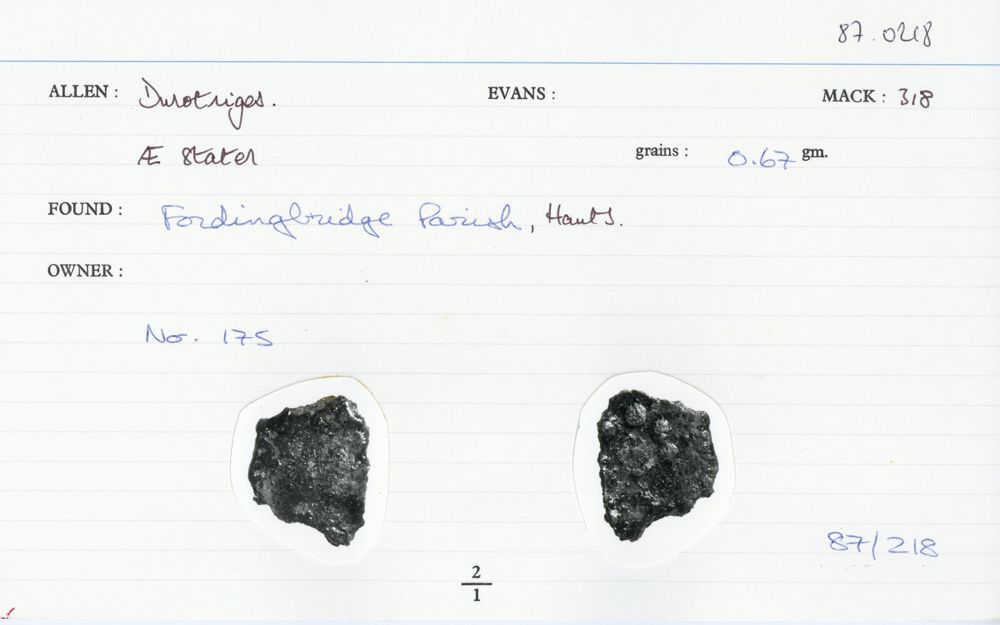 87.0218
ALLEN : Durotriges. EVANS : MACK : 318
Æ Stater grains : 0.67 gm.
FOUND : Fordingbridge Parish, Hants.
OWNER :
No. 175
87/218
2
1